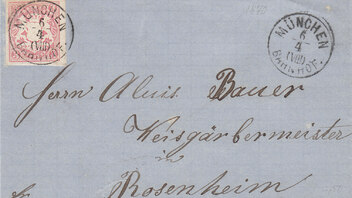 MÜNCHEN
6
4
(VIII)
BAHNHOF.
MÜNCHEN
6
4
(VIII)
BAHNHOF.
Herrn Alois Bauer
Weisgärbermeister
in
Rosenheim